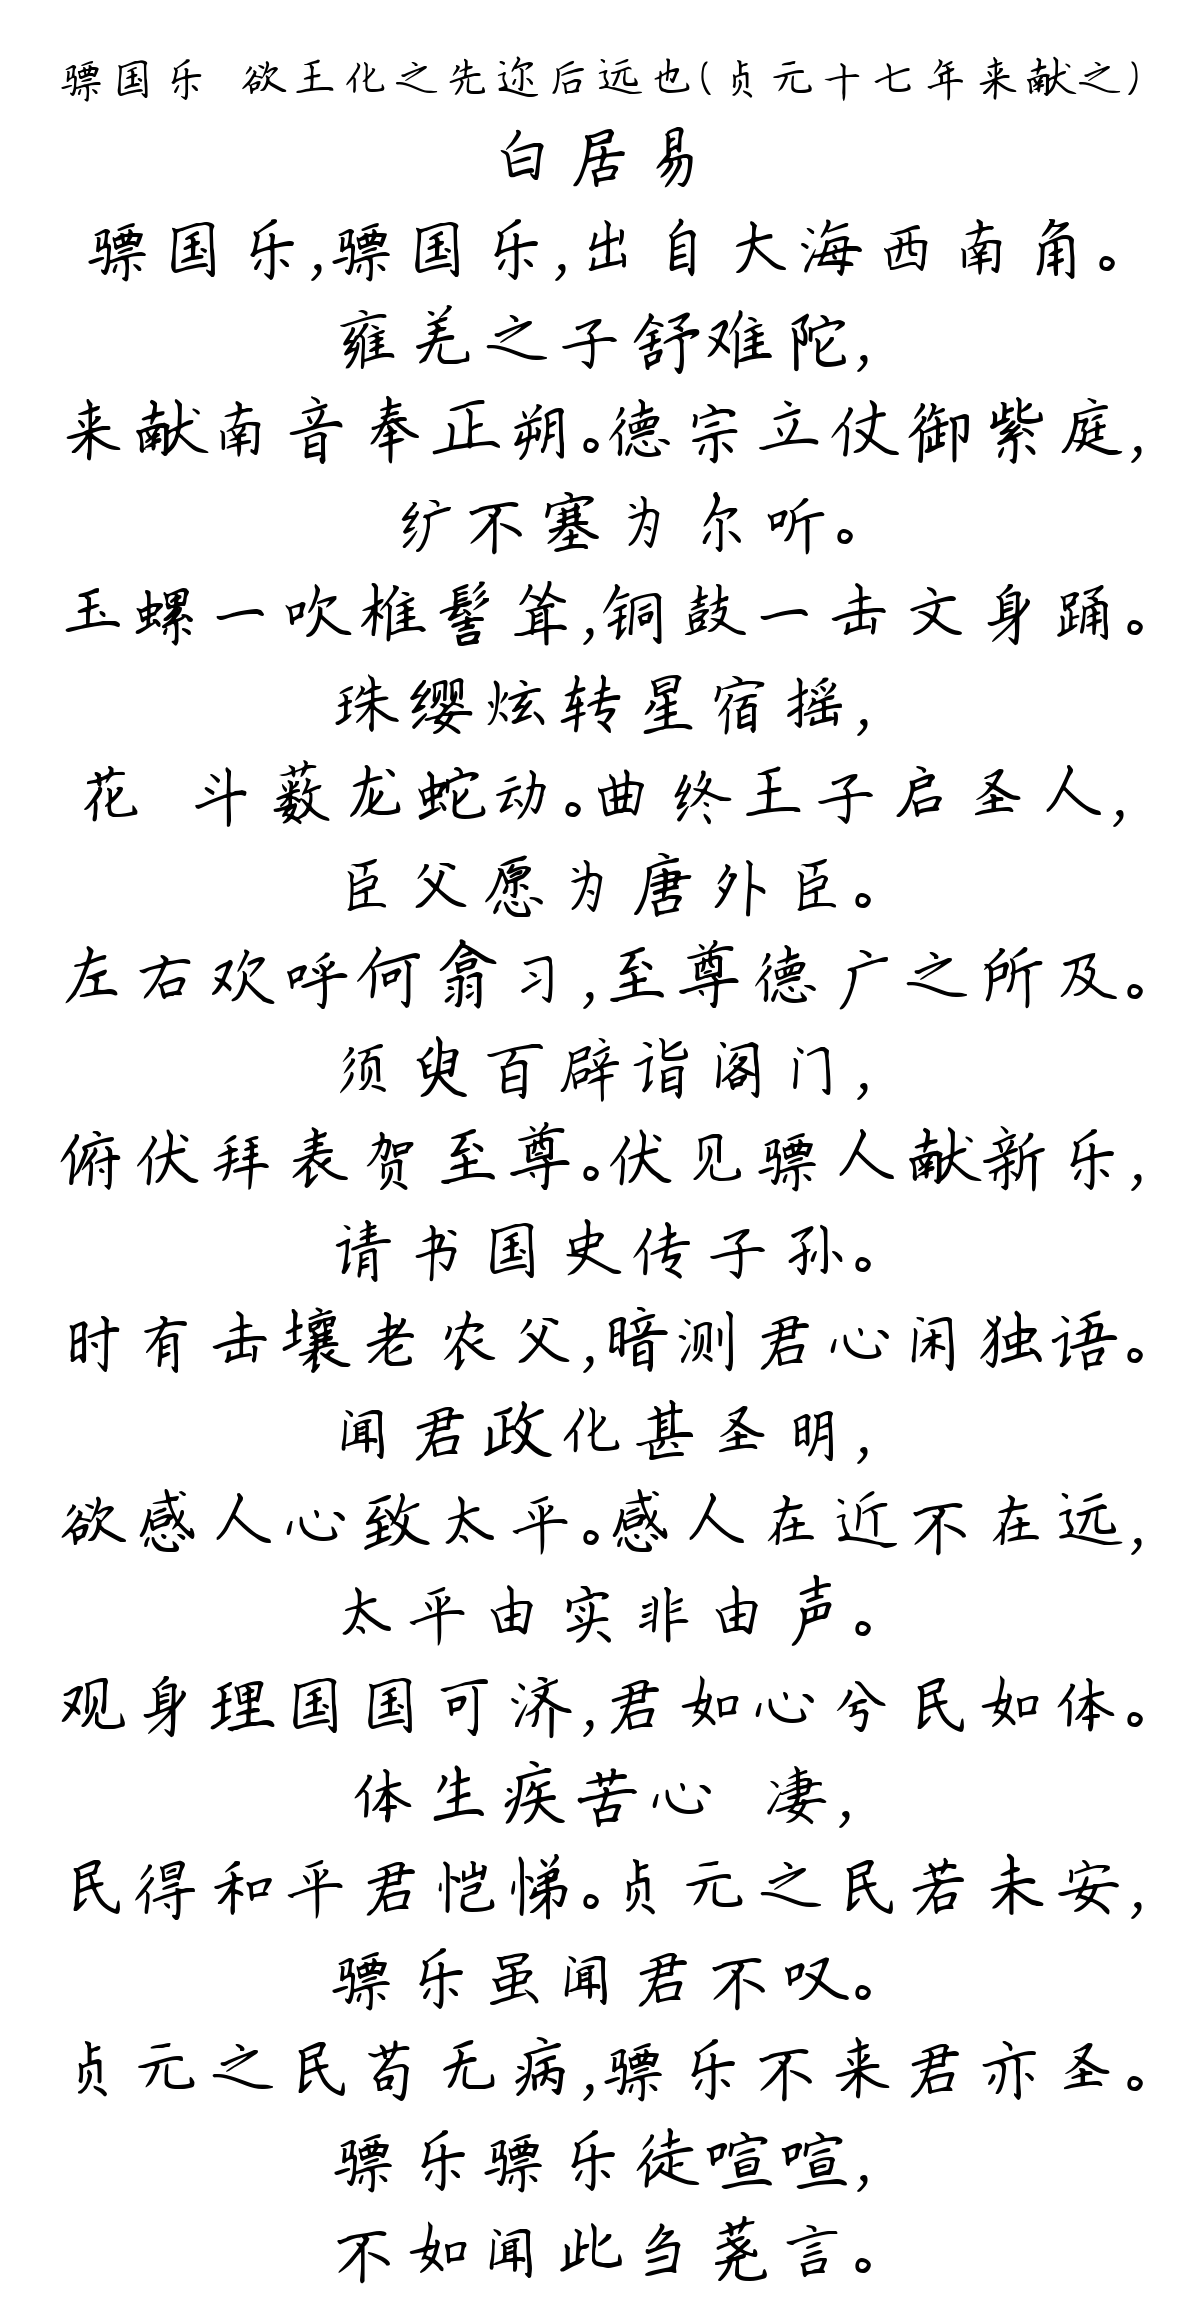 骠国乐 欲王化之先迩后远也(贞元十七年来献之)
白居易
骠国乐,骠国乐,出自大海西南角。
雍羌之子舒难陀,
来献南音奉正朔。德宗立仗御紫庭,
纩不塞为尔听。
玉螺一吹椎髻耸,铜鼓一击文身踊。
珠缨炫转星宿摇,
花 斗薮龙蛇动。曲终王子启圣人,
臣父愿为唐外臣。
左右欢呼何翕习,至尊德广之所及。
须臾百辟诣阁门,
俯伏拜表贺至尊。伏见骠人献新乐,
请书国史传子孙。
时有击壤老农父,暗测君心闲独语。
闻君政化甚圣明,
欲感人心致太平。感人在近不在远,
太平由实非由声。
观身理国国可济,君如心兮民如体。
体生疾苦心 凄,
民得和平君恺悌。贞元之民若未安,
骠乐虽闻君不叹。
贞元之民苟无病,骠乐不来君亦圣。
骠乐骠乐徒喧喧,
不如闻此刍荛言。